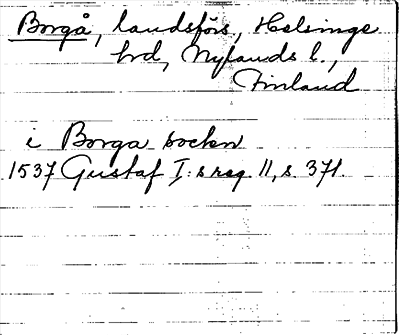 Borgå, landsförs, Helsinge
hrd, Nylands l.,
Finland
i Borga sockn
1537 Gustaf I:s reg. 11, s. 371.